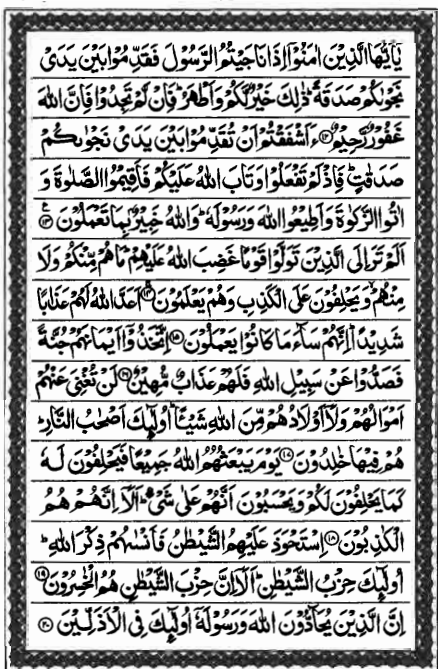 يٰۤاَيُّهَا الَّذِيْنَ اٰمَنُوْۤا اِذَا نَاجَيْتُمُ الرَّسُوْلَ فَقَدِّمُوْا بَيْنَ يَدَىْ
نَجْوٰىكُمْ صَدَقَةً ؕ ذٰلِكَ خَيْرٌ لَّكُمْ وَاَطْهَرُ ؕ فَاِنْ لَّمْ تَجِدُوْا فَاِنَّ اللّٰهَ
غَفُوْرٌ رَّحِيْمٌ ۝۱۲ ءَاَشْفَقْتُمْ اَنْ تُقَدِّمُوْا بَيْنَ يَدَىْ نَجْوٰىكُمْ
صَدَقٰتٍ ؕ فَاِذْ لَمْ تَفْعَلُوْا وَتَابَ اللّٰهُ عَلَيْكُمْ فَاَقِيْمُوا الصَّلٰوةَ وَ
اٰتُوا الزَّكٰوةَ وَاَطِيْعُوا اللّٰهَ وَرَسُوْلَهٗ ؕ وَاللّٰهُ خَبِيْرٌۢ بِمَا تَعْمَلُوْنَ ۝۱۳
اَلَمْ تَرَ اِلَى الَّذِيْنَ تَوَلَّوْا قَوْمًا غَضِبَ اللّٰهُ عَلَيْهِمْ ؕ مَا هُمْ مِّنْكُمْ وَلَا
مِنْهُمْ ۙ وَيَحْلِفُوْنَ عَلَى الْكَذِبِ وَهُمْ يَعْلَمُوْنَ ۝۱۴ اَعَدَّ اللّٰهُ لَهُمْ عَذَابًا
شَدِيْدًا ؕ اِنَّهُمْ سَآءَ مَا كَانُوْا يَعْمَلُوْنَ ۝۱۵ اِتَّخَذُوْۤا اَيْمَانَهُمْ جُنَّةً
فَصَدُّوْا عَنْ سَبِيْلِ اللّٰهِ فَلَهُمْ عَذَابٌ مُّهِيْنٌ ۝۱۶ لَنْ تُغْنِىَ عَنْهُمْ
اَمْوَالُهُمْ وَلَاۤ اَوْلَادُهُمْ مِّنَ اللّٰهِ شَيْئًا ؕ اُولٰٓئِكَ اَصْحٰبُ النَّارِ ؕ
هُمْ فِيْهَا خٰلِدُوْنَ ۝۱۷ يَوْمَ يَبْعَثُهُمُ اللّٰهُ جَمِيْعًا فَيَحْلِفُوْنَ لَهٗ
كَمَا يَحْلِفُوْنَ لَكُمْ وَيَحْسَبُوْنَ اَنَّهُمْ عَلٰى شَىْءٍ ؕ اَلَاۤ اِنَّهُمْ هُمُ
الْكٰذِبُوْنَ ۝۱۸ اِسْتَحْوَذَ عَلَيْهِمُ الشَّيْطٰنُ فَاَنْسٰىهُمْ ذِكْرَ اللّٰهِ ؕ
اُولٰٓئِكَ حِزْبُ الشَّيْطٰنِ ؕ اَلَاۤ اِنَّ حِزْبَ الشَّيْطٰنِ هُمُ الْخٰسِرُوْنَ ۝۱۹
اِنَّ الَّذِيْنَ يُحَآدُّوْنَ اللّٰهَ وَرَسُوْلَهٗۤ اُولٰٓئِكَ فِى الْاَذَلِّيْنَ ۝۲۰